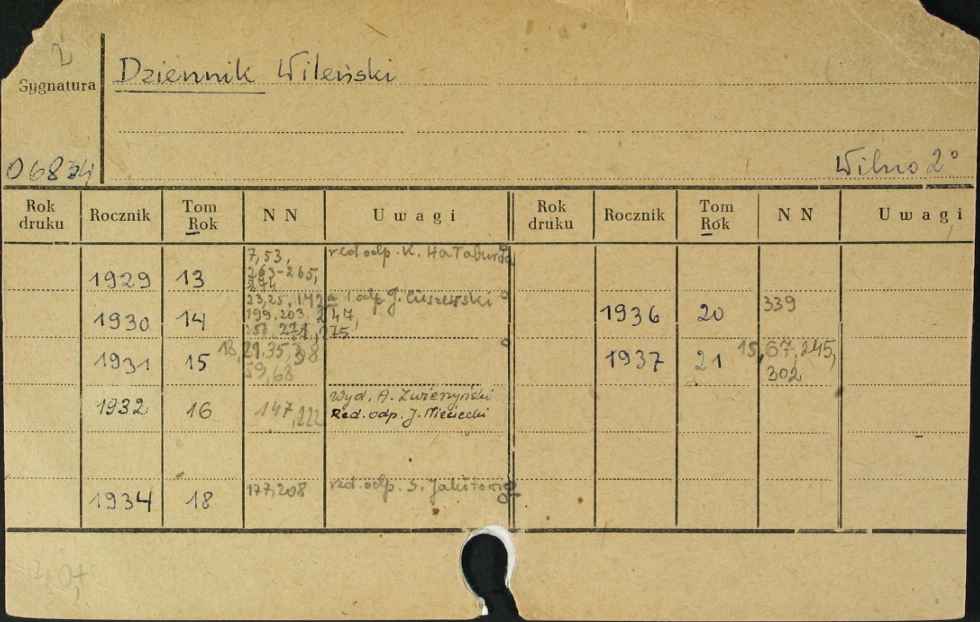 2
Sygnatura
Dziennik Wileński
06834
Wilno 2°
Rok druku Rocznik Tom Rok N N Uwagi Rok druku Rocznik Tom Rok N N Uwagi
7,53, red. odp. K. Hałaburda
1929 13 263-265,
274
23,25, 142 a i odp J. Cieszewski
1930 14 199,203, 247, 1936 20 339
275
1931 15 18, 29,35,38 1937 21 15,67,245,
59,68 302
wyd. A. Zwierzyński
1932 16 147,222 Red. odp. J. Nieciecki
177,208 red. odp. S.
1934 18